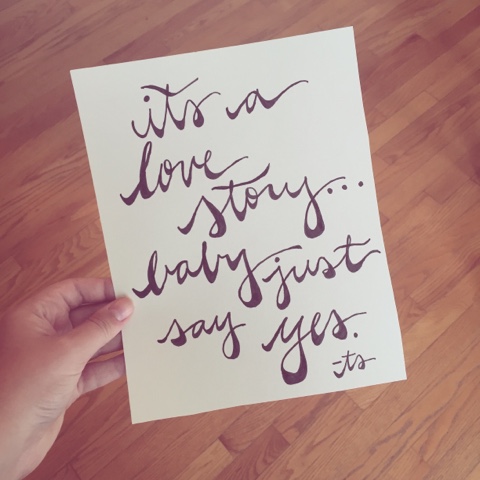 its a
love
story...
baby just
say yes.
-ts